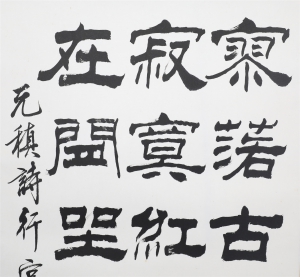 寥落古
寂寞紅
在閒坐
元稹詩行宮